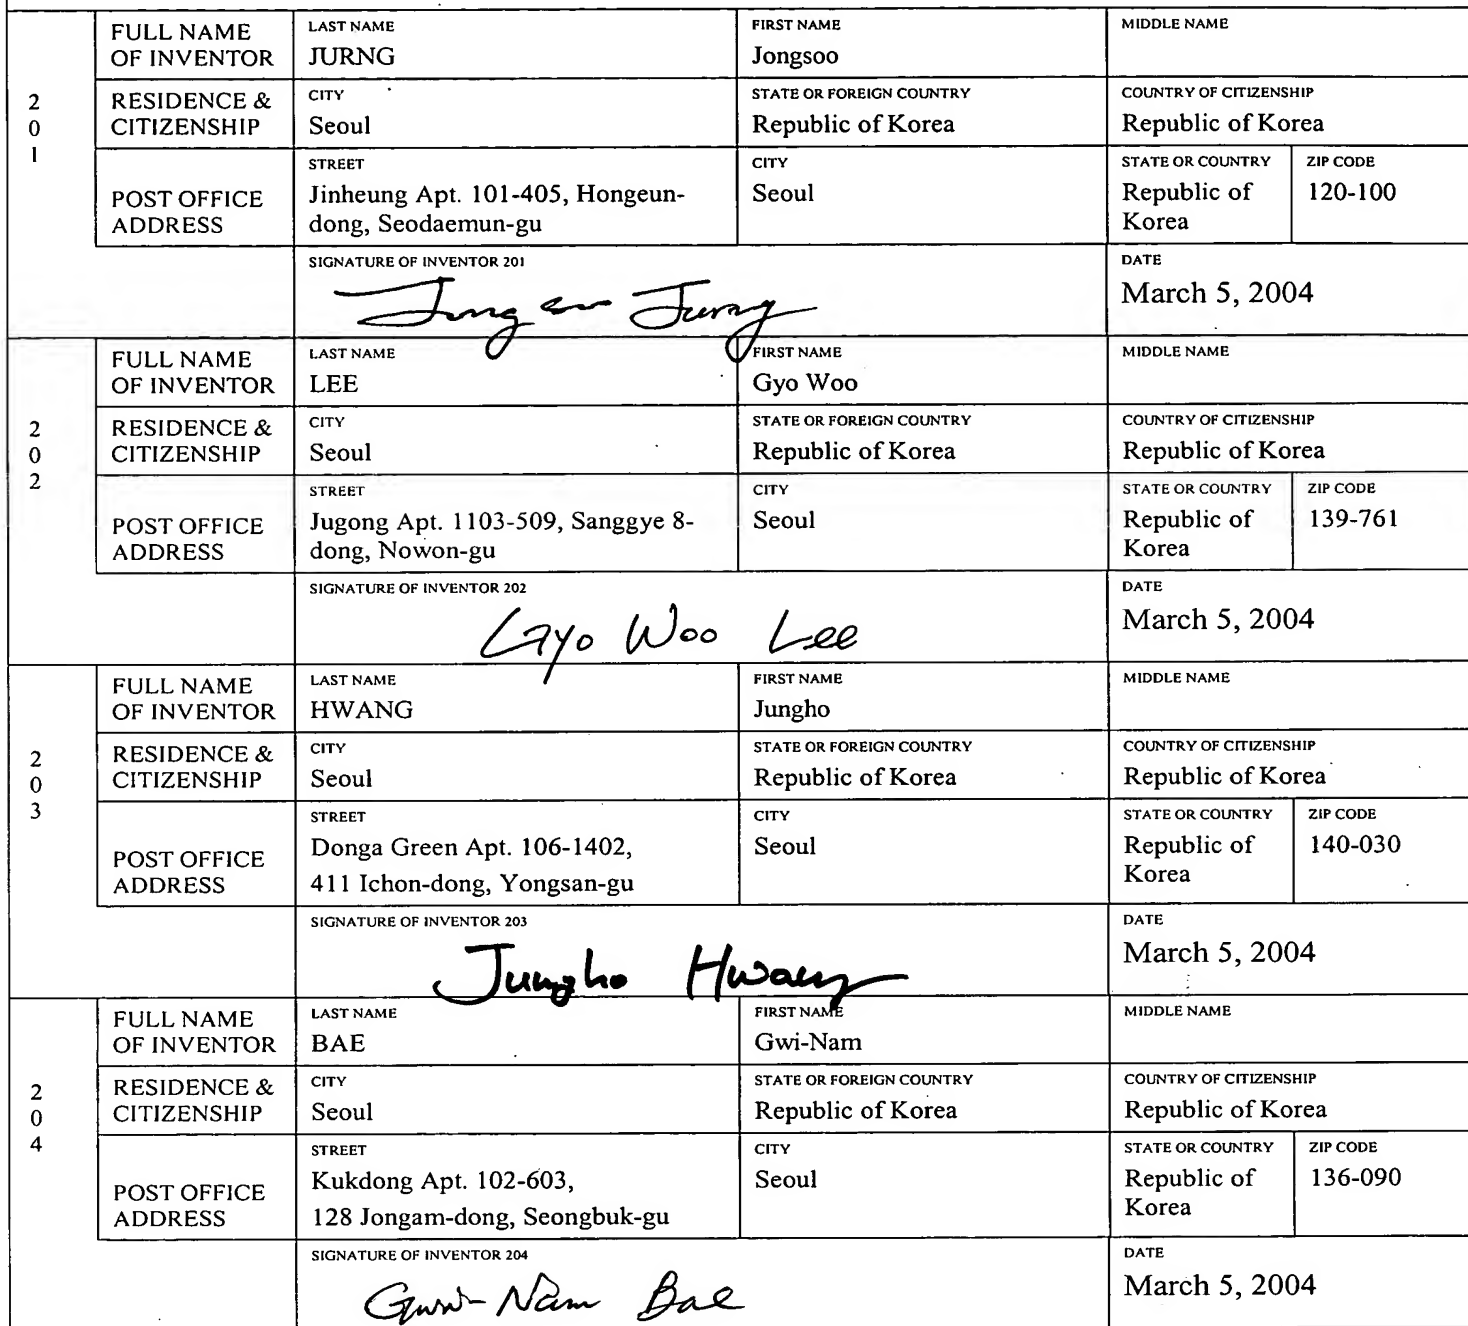 FULL NAME OF INVENTOR
LAST NAME
JURNG
FIRST NAME
Jongsoo
MIDDLE NAME
201
RESIDENCE & CITIZENSHIP
CITY
Seoul
STATE OR FOREIGN COUNTRY
Republic of Korea
COUNTRY OF CITIZENSHIP
Republic of Korea
POST OFFICE ADDRESS
STREET
Jinheung Apt. 101-405, Hongeun-
dong, Seodaemun-gu
CITY
Seoul
STATE OR COUNTRY
Republic of
Korea
ZIP CODE
120-100
SIGNATURE OF INVENTOR 201
Jurng
DATE
March 5, 2004
FULL NAME OF INVENTOR
LAST NAME
LEE
FIRST NAME
Gyo Woo
MIDDLE NAME
202
RESIDENCE & CITIZENSHIP
CITY
Seoul
STATE OR FOREIGN COUNTRY
Republic of Korea
COUNTRY OF CITIZENSHIP
Republic of Korea
POST OFFICE ADDRESS
STREET
Jugong Apt. 1103-509, Sanggye 8-
dong, Nowon-gu
CITY
Seoul
STATE OR COUNTRY
Republic of
Korea
ZIP CODE
139-761
SIGNATURE OF INVENTOR 202
Gyo Woo Lee
DATE
March 5, 2004
FULL NAME OF INVENTOR
LAST NAME
HWANG
FIRST NAME
Jungho
MIDDLE NAME
203
RESIDENCE & CITIZENSHIP
CITY
Seoul
STATE OR FOREIGN COUNTRY
Republic of Korea
COUNTRY OF CITIZENSHIP
Republic of Korea
POST OFFICE ADDRESS
STREET
Donga Green Apt. 106-1402,
411 Ichon-dong, Yongsan-gu
CITY
Seoul
STATE OR COUNTRY
Republic of
Korea
ZIP CODE
140-030
SIGNATURE OF INVENTOR 203
Jungho Hwang
DATE
March 5, 2004
FULL NAME OF INVENTOR
LAST NAME
BAE
FIRST NAME
Gwi-Nam
MIDDLE NAME
204
RESIDENCE & CITIZENSHIP
CITY
Seoul
STATE OR FOREIGN COUNTRY
Republic of Korea
COUNTRY OF CITIZENSHIP
Republic of Korea
POST OFFICE ADDRESS
STREET
Kukdong Apt. 102-603,
128 Jongam-dong, Seongbuk-gu
CITY
Seoul
STATE OR COUNTRY
Republic of
Korea
ZIP CODE
136-090
SIGNATURE OF INVENTOR 204
Gwi-Nam Bae
DATE
March 5, 2004